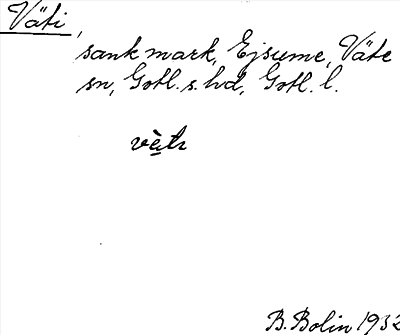 Väti,
sank mark, Ejsume, Väte
sn, Gotl. s. hd, Gotl. l.
B. Bolin 1932